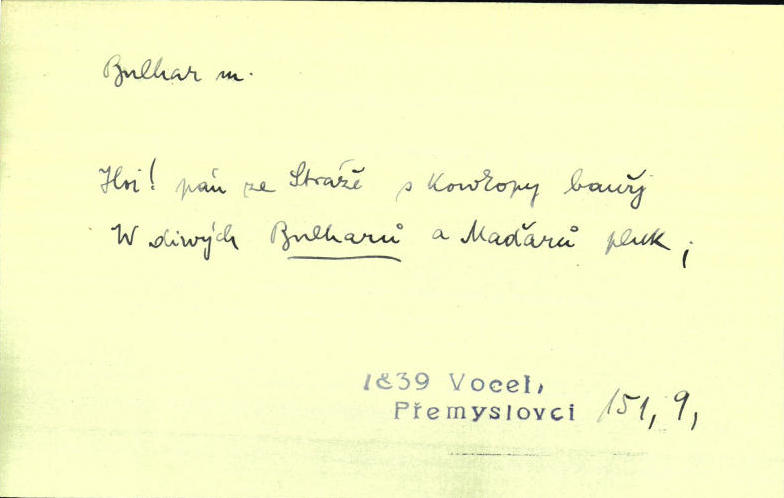 Bulhar m.
Hoj! pán ze Stráže s Kowkopy bauřj
W diwých Bulharů a Maďarů pluk;
1839 Vocel,
Přemyslovci 151, 9,